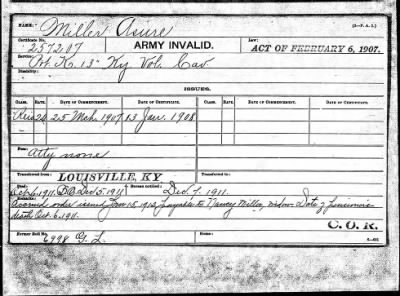 NAME: Miller Asure (3—P. A. 2.)
Certificate No. 257207 ARMY INVALID. Law: ACT OF FEBRUARY 6, 1907.
Service: Pvt. K. 13" Ky Vol. Cav
Disability:
ISSUES.
CLASS. RATE. DATE OF COMMENCEMENT. DATE OF CERTIFICATE. CLASS. RATE. DATE OF COMMENCEMENT. DATE OF CERTIFICATE.
20. 25 Mch. 1907 13 Jan. 1908
Atty none
Transferred from LOUISVILLE, KY Transferred to
Died: Oct 6. 1911. Dec 5. 1911 Bureau notified: Dec. 7. 1911.
Remarks:
Accrued order issued Jan 15, 1912, payable to Nancy Miller, widow. Date of pensioner's
death Oct. 6. 1911.
C. O. K.
Former Roll No. 6998 G. L. Home: